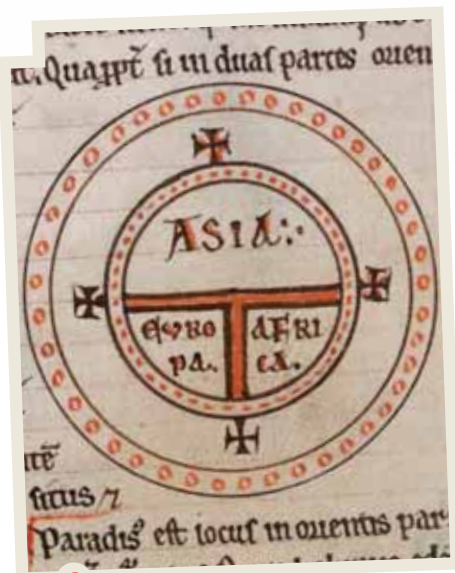 Quaꝓpt̄ si in duas partes orien
ASIA:·
EURO
PA.
AFRI
CA.
situs ⁊
Paradisꝰ est locus in orientis par